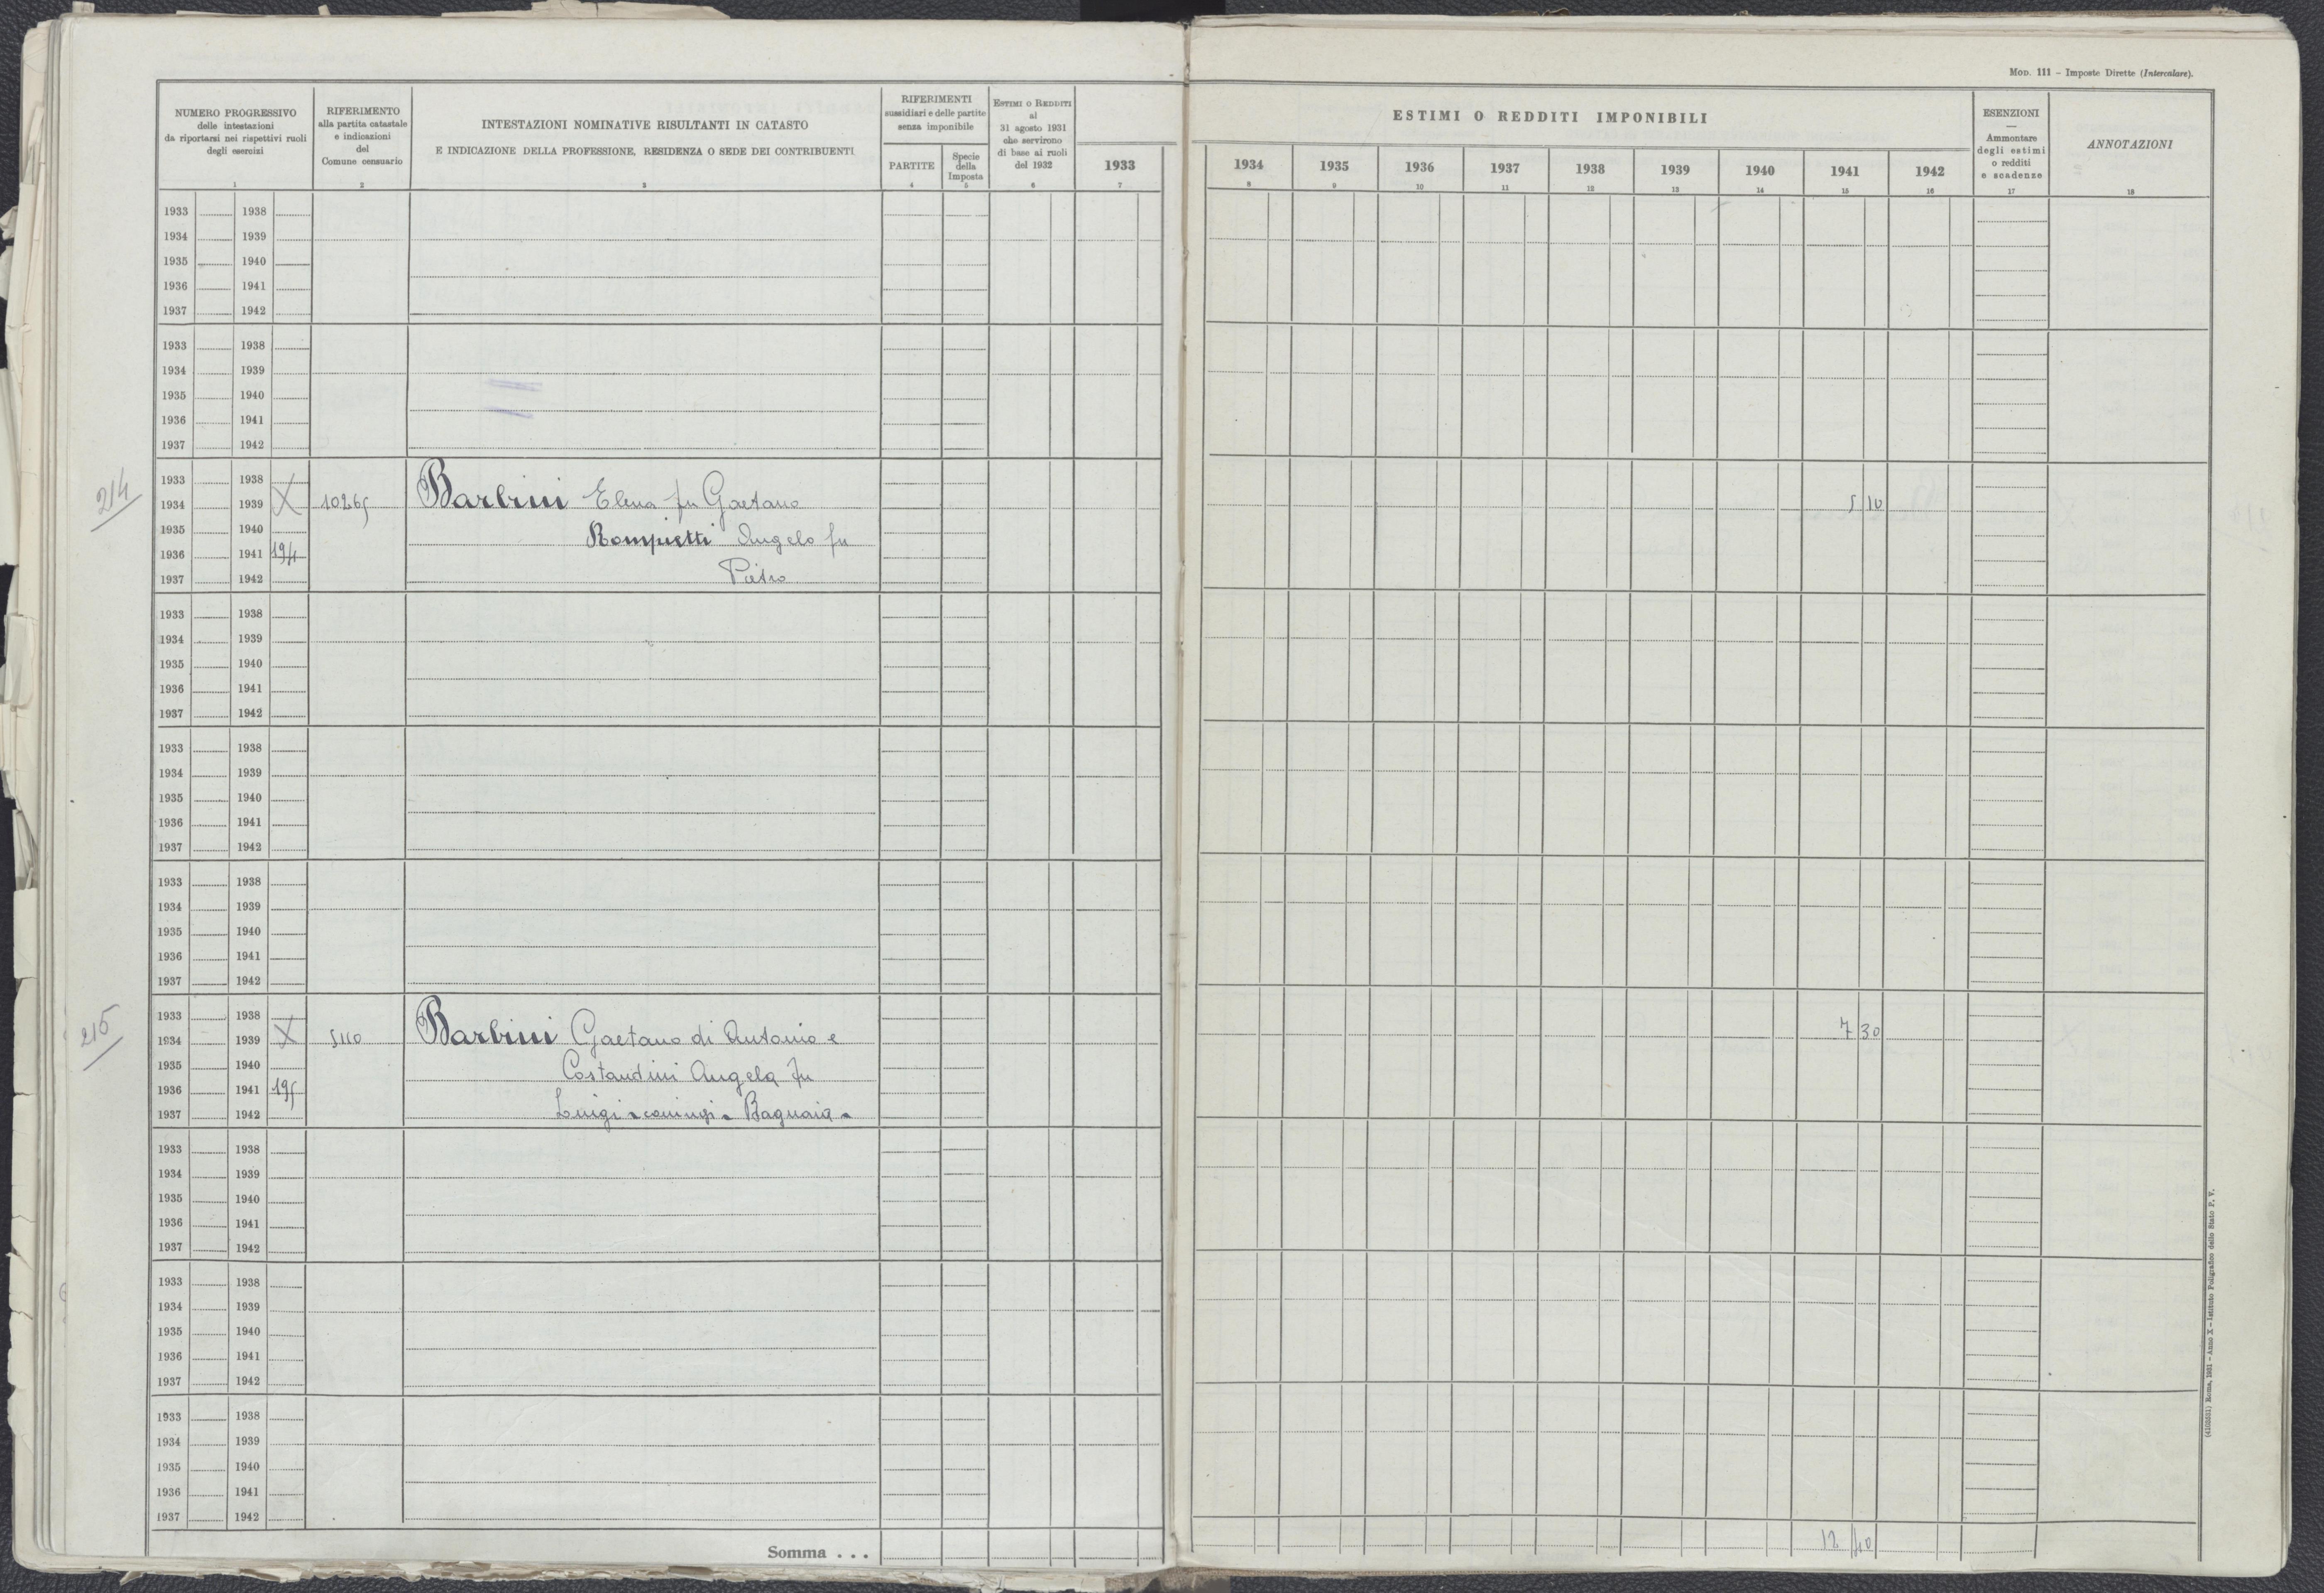 MOD. 111 – Imposte Dirette (Intercalare).
NUMERO PROGRESSIVO
delle intestazioni
da riportarsi nei rispettivi ruoli
degli esercizi
1
RIFERIMENTO
alla partita catastale
e indicazioni
del
Comune censuario
2
INTESTAZIONI NOMINATIVE RISULTANTI IN CATASTO
E INDICAZIONE DELLA PROFESSIONE, RESIDENZA O SEDE DEI CONTRIBUENTI
3
RIFERIMENTI
sussidiari e delle partite
senza imponibile
PARTITE
4
Specie
della
Imposta
5
ESTIMI O REDDITI
al
31 agosto 1931
che servirono
di base ai ruoli
del 1932
6
1933
7
ESTIMI O REDDITI IMPONIBILI
1934 1935 1936 1937 1938 1939 1940 1941 1942
8 9 10 11 12 13 14 15 16
ESENZIONI
—
Ammontare
degli estimi
o redditi
e scadenze
17
ANNOTAZIONI
18
1933 1938
1934 1939
1935 1940
1936 1941
1937 1942
1933 1938
1934 1939
1935 1940
1936 1941
1937 1942
214
1933 1938
1934 1939 X 10265 Barbini Elena fu Gaetano 5 10
1935 1940 Rompietti Angelo fu
1936 1941 194
1937 1942 Pietro
1933 1938
1934 1939
1935 1940
1936 1941
1937 1942
1933 1938
1934 1939
1935 1940
1936 1941
1937 1942
1933 1938
1934 1939
1935 1940
1936 1941
1937 1942
215
1933 1938
1934 1939 X 5110 Barbini Gaetano di Antonio e 7 30
1935 1940 Costandini Angela fu
1936 1941 195
1937 1942 Luigi - coniugi - Bagnaia -
1933 1938
1934 1939
1935 1940
1936 1941
1937 1942
1933 1938
1934 1939
1935 1940
1936 1941
1937 1942
1933 1938
1934 1939
1935 1940
1936 1941
1937 1942
Somma . . . 12 40
(4105531) Roma, 1931 – Anno X – Istituto Poligrafico dello Stato P. V.